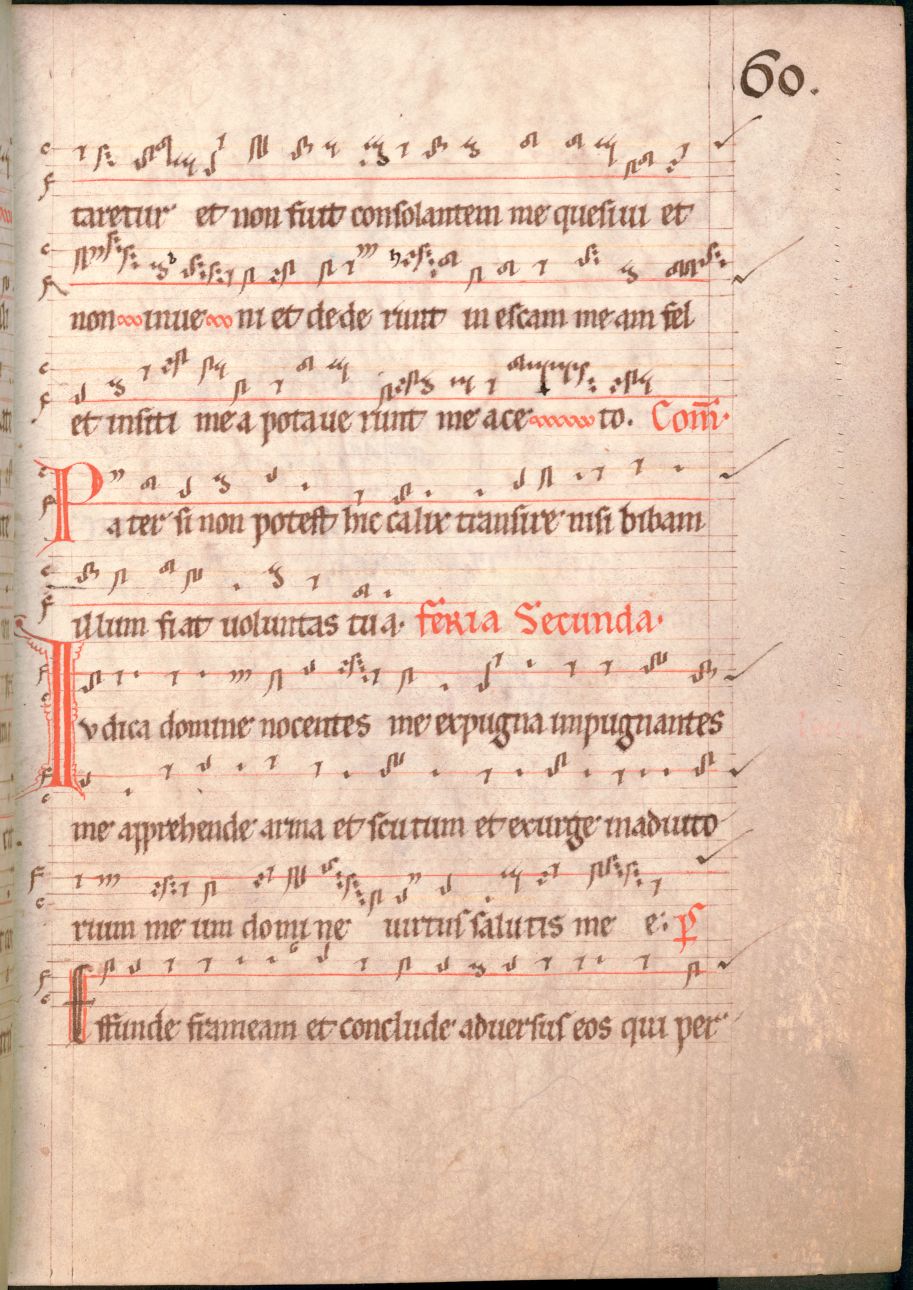 60.
taretur et non fuit consolantem me quesiui et
non inue ni et dede runt in escam me am fel
et insiti me a potaue runt me ace to. Com̄.
Pa ter si non potest hic calix transire nisi bibam
illum fiat uoluntas tua. feria Secunda.
Iudica domine nocentes me expugna impugnantes
me apprehende arma et scutum et exurge inadiuto
rium me um domi ne uirtus salutis me e. ps
Effunde frameam et conclude aduersus eos qui per